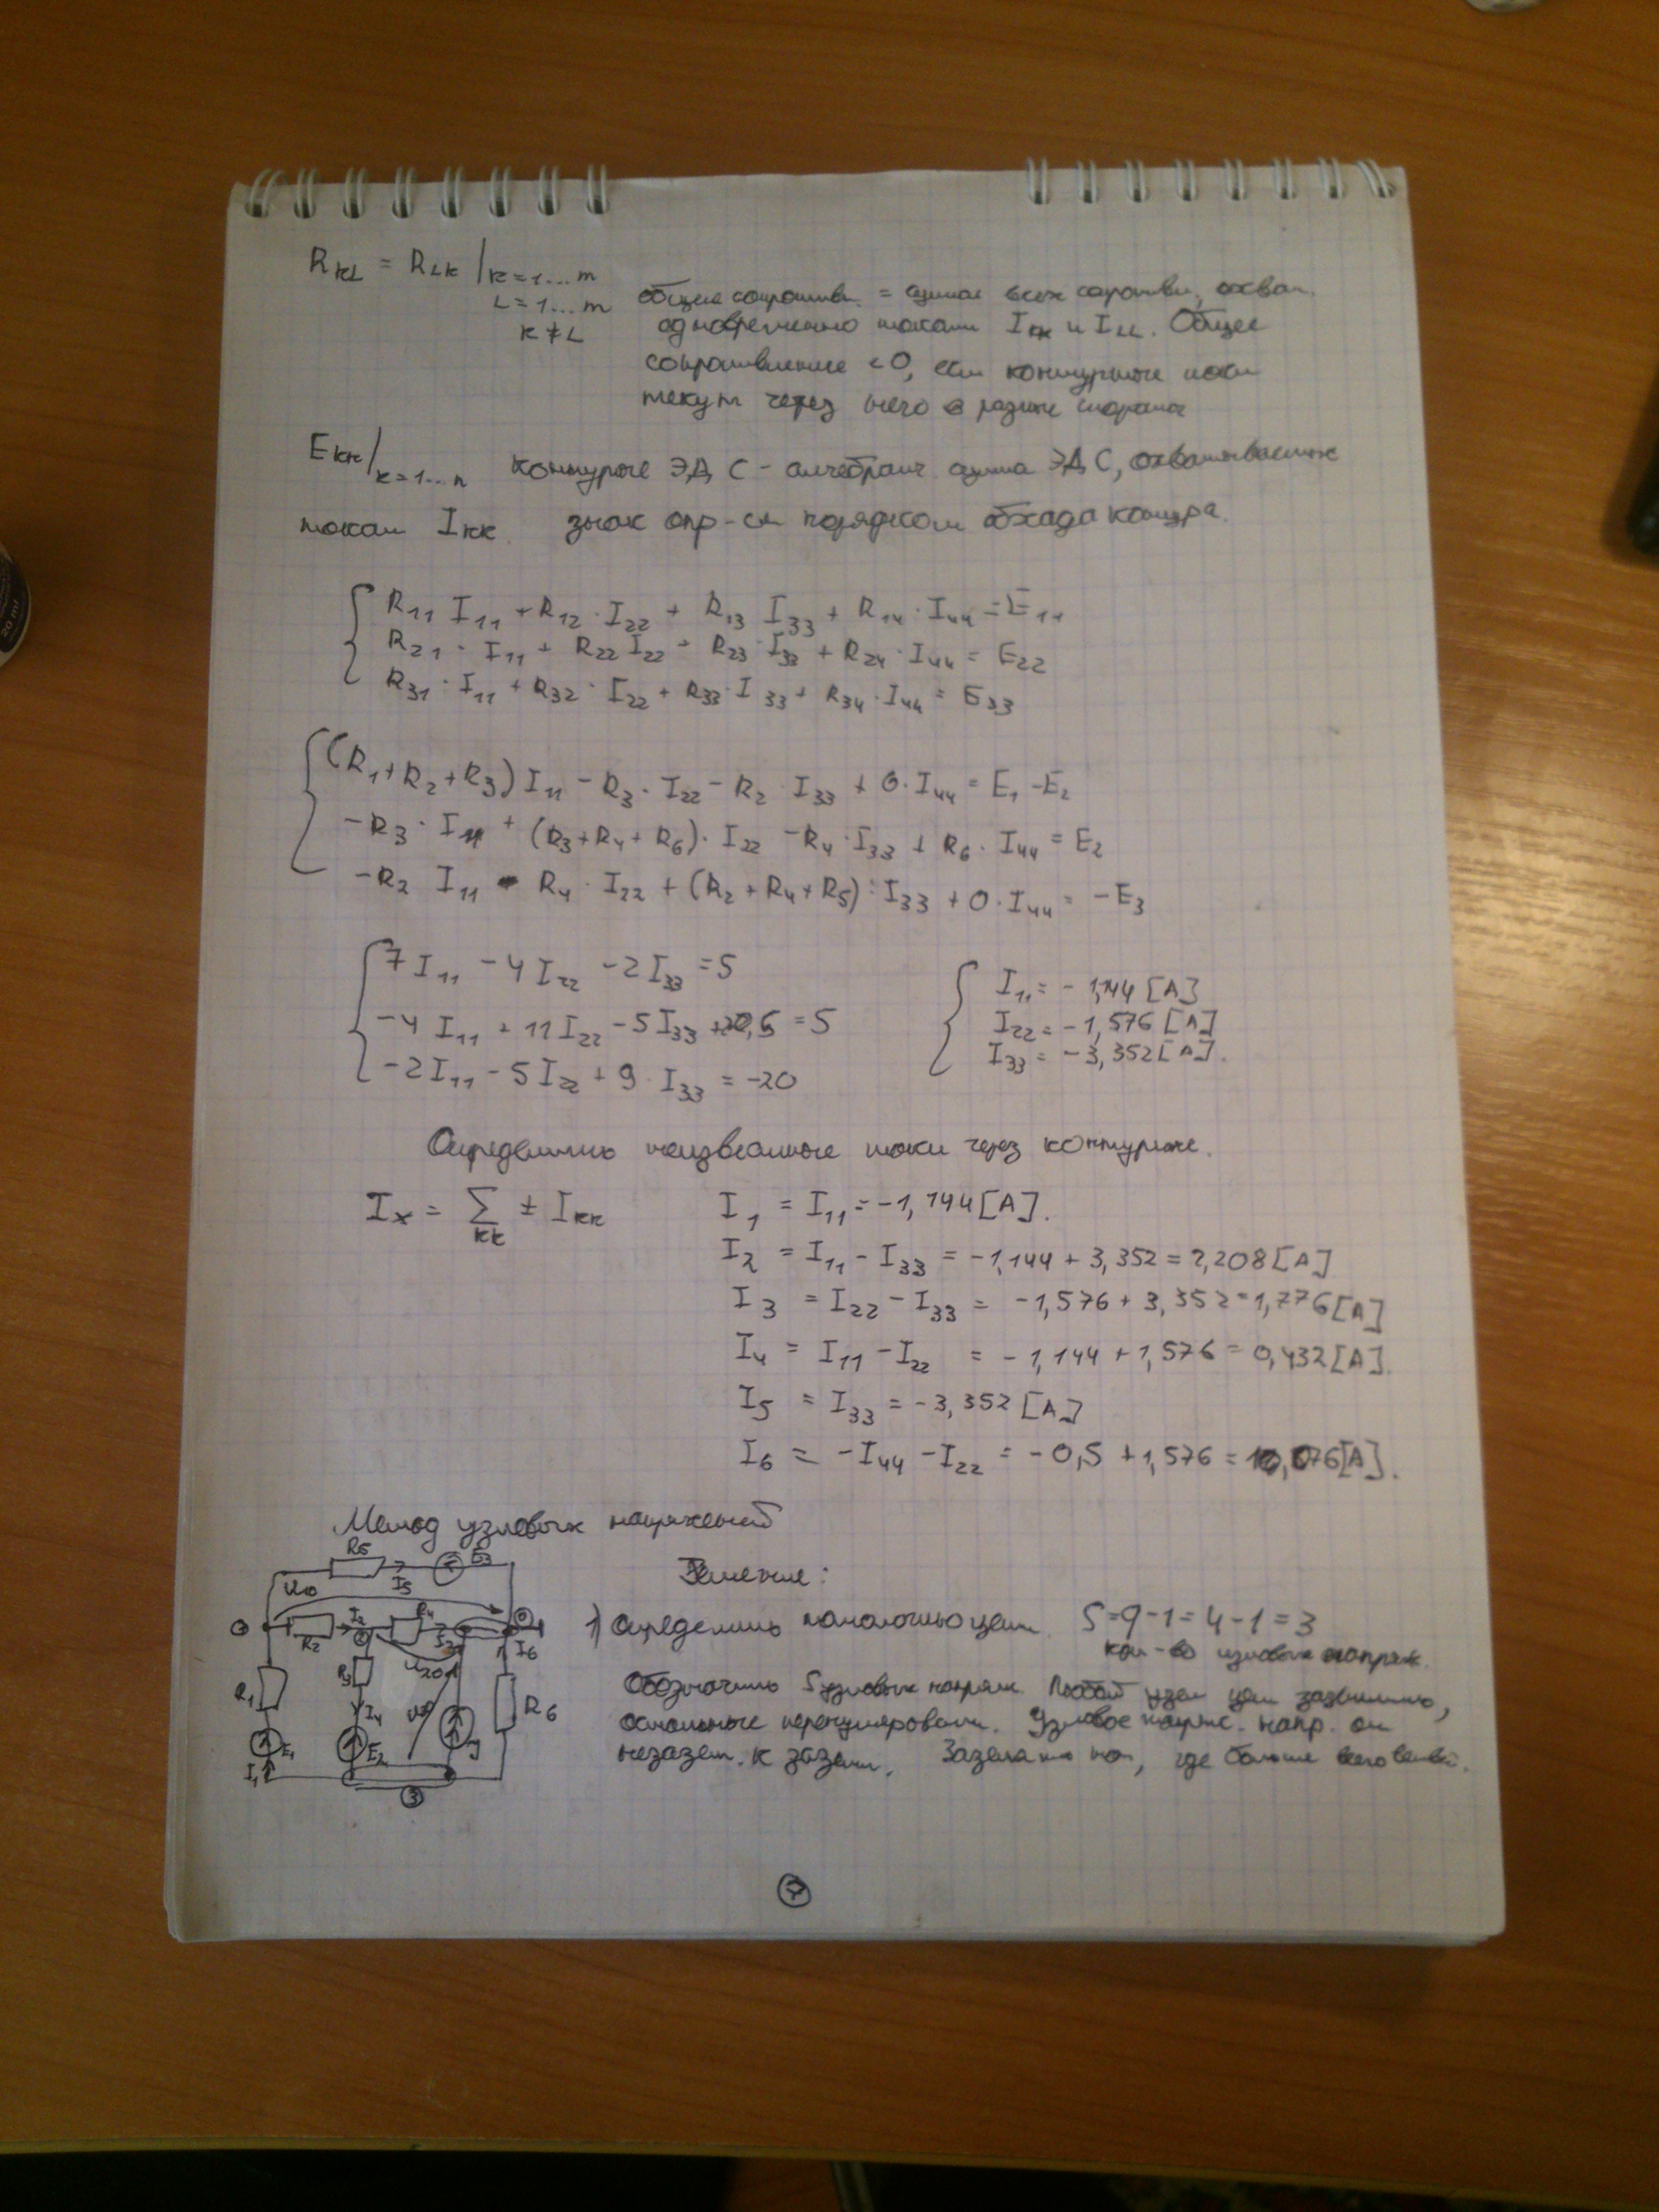 R_KL = R_LK | K=1...m
L=1...m
K≠L
общее сопротивл. = сумме всех сопротивл., охвач.
одновременно токами I_KK и I_LL. Общее
сопротивление <0, если контурные токи
текут через него в разные стороны
E_KK | K=1...n контурные ЭДС - алгебраич сумма ЭДС, охватываемых
током I_KK. знак опр-ся порядком обхода контура.
R11 I11 + R12 · I22 + R13 I33 + R14 · I44 = E11
R21 · I11 + R22 I22 + R23 · I33 + R24 · I44 = E22
R31 · I11 + R32 · I22 + R33 · I33 + R34 · I44 = E33
(R1+R2+R3) I11 - R3 · I22 - R2 · I33 + 0 · I44 = E1 - E2
-R3 · I11 + (R3+R4+R6) · I22 - R4 · I33 + R6 · I44 = E2
-R2 I11 - R4 · I22 + (R2+R4+R5) · I33 + 0 · I44 = -E3
7 I11 - 4 I22 - 2 I33 = 5
-4 I11 + 11 I22 - 5 I33 = 5
-2 I11 - 5 I22 + 9 · I33 = -20
I11 = -1,144 [A]
I22 = -1,576 [A]
I33 = -3,352 [A].
Определить неизвестные токи через контурные.
I_x = Σ_KK ± I_KK
I1 = I11 = -1,144 [A].
I2 = I11 - I33 = -1,144 + 3,352 = 2,208 [A]
I3 = I22 - I33 = -1,576 + 3,352 = 1,776 [A]
I4 = I11 - I22 = -1,144 + 1,576 = 0,432 [A].
I5 = I33 = -3,352 [A]
I6 = -I44 - I22 = -0,5 + 1,576 = [A].
Метод узловых напряжений
R5 I5 E3
U10
R2 I2 R4 I3 I6
R1 R3 U20 R6
I4
E1 E2 J
I1
3
Решение:
1) Определить топологию цепи. S = q-1 = 4-1 = 3
кол-во узловых напряж.
Обозначить S узловых напряж. Любой узел цепи заземлить,
остальные перенумеровать. Узловое напряж. напр. от
незазем. к зазем. Заземлять тот, где больше всего ветвей.
7